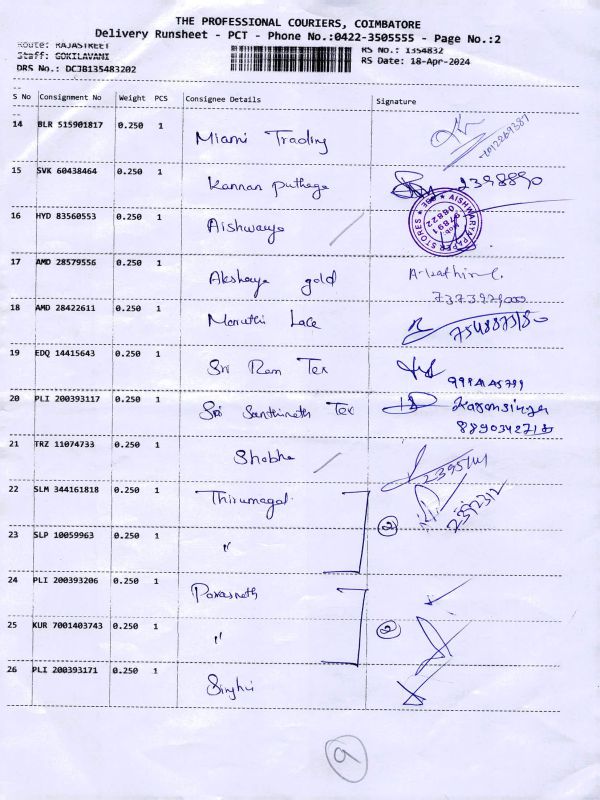 THE PROFESSIONAL COURIERS, COIMBATORE
Delivery Runsheet - PCT - Phone No.:0422-3505555 - Page No.:2
Route: RAJASTREET
Staff: GOKILAVANI
RS No.: 1354832
DRS No.: DCJB135483202
RS Date: 18-Apr-2024
S No Consignment No Weight PCS Consignee Details Signature
14 BLR 515901817 0.250 1 Miami Trading
15 SVK 60438464 0.250 1 Kannan puthaga 2398890
16 HYD 83560553 0.250 1 Aishwarya
AISHWARYA PAPER STORES
17 AMD 28579556 0.250 1 Akshaya gold
18 AMD 28422611 0.250 1 Maruthi Lace
19 EDQ 14415643 0.250 1 Sri Ram Tex
20 PLI 200393117 0.250 1 Sri Santhinath Tex
21 TRZ 11074733 0.250 1 Shobha
22 SLM 344161818 0.250 1 Thirumagal 2392312
23 SLP 10059963 0.250 1 " 2
24 PLI 200393206 0.250 1 Parasnath
25 KUR 7001403743 0.250 1 " 2
26 PLI 200393171 0.250 1 Singhvi
9